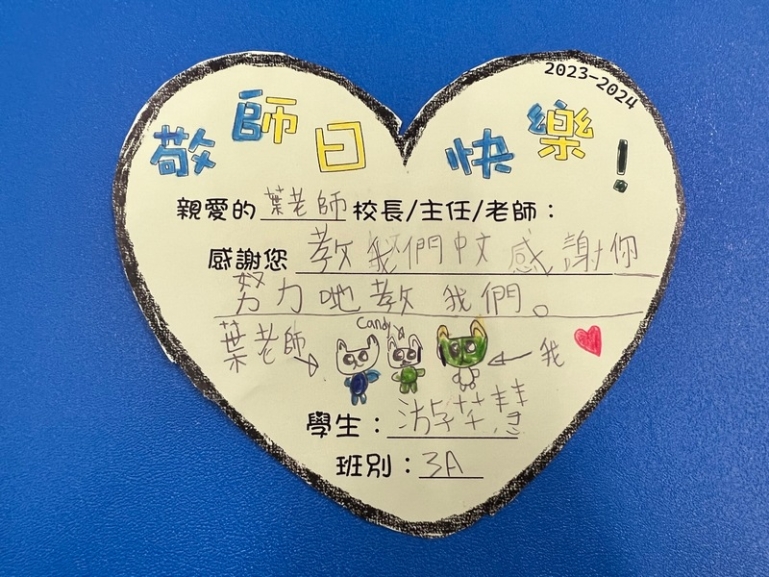 2023-2024
敬師日快樂!
親愛的 葉老師 校長/主任/老師:
感謝您 教我們中文 感謝你
努力地教 我們。
葉老師 Candy 我
學生:游芊慧
班別:3A